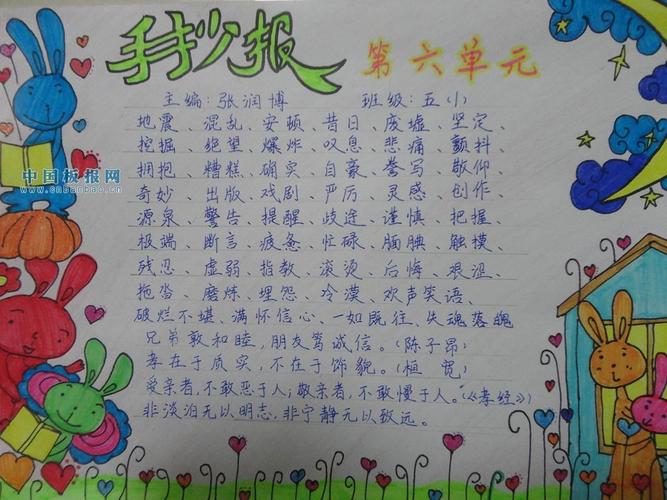 手抄报 第六单元
主编:张润博 班级:五(1)
中国板报网
www.cnbanbao.cn
地震、混乱、安顿、昔日、废墟、坚定、
挖掘、绝望、爆炸、叹息、悲痛、颤抖、
拥抱、糟糕、确实、自豪、誊写、敬仰
奇妙、出版、戏剧、严厉、灵感、创作、
源泉、警告、提醒、歧途、谨慎、把握、
极端、断言、疲惫、忙碌、腼腆、触摸、
残忍、虚弱、指教、滚烫、后悔、艰涩、
拖沓、磨炼、埋怨、冷漠、欢声笑语、
破烂不堪、满怀信心、一如既往、失魂落魄
兄弟敦和睦,朋友笃诚信。(陈子昂)
孝在于质实,不在于饰貌。(桓宽)
爱亲者,不敢恶于人;敬亲者,不敢慢于人。(《孝经》)
非淡泊无以明志,非宁静无以致远。